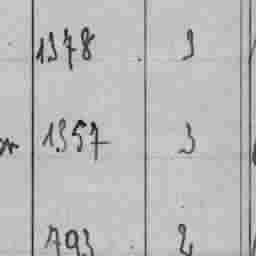 1378 3
1357 3
793 2